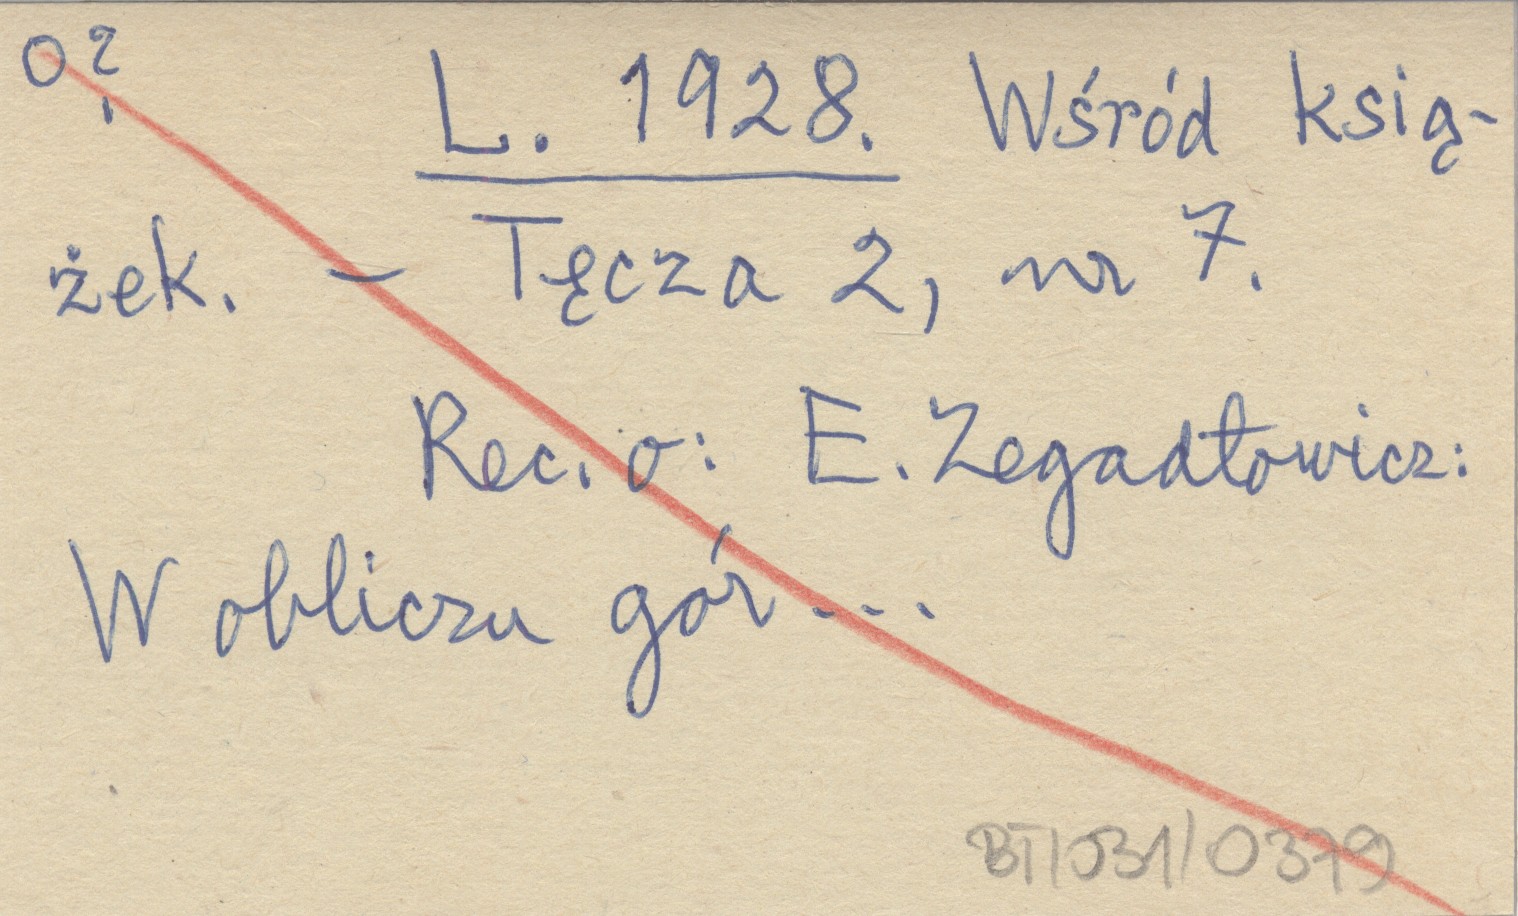 o?
L. 1928. Wśród ksią-
żek. – Tęcza 2, nr 7.
Rec. o: E. Zegadłowicz:
W obliczu gór...
BT/531/0379